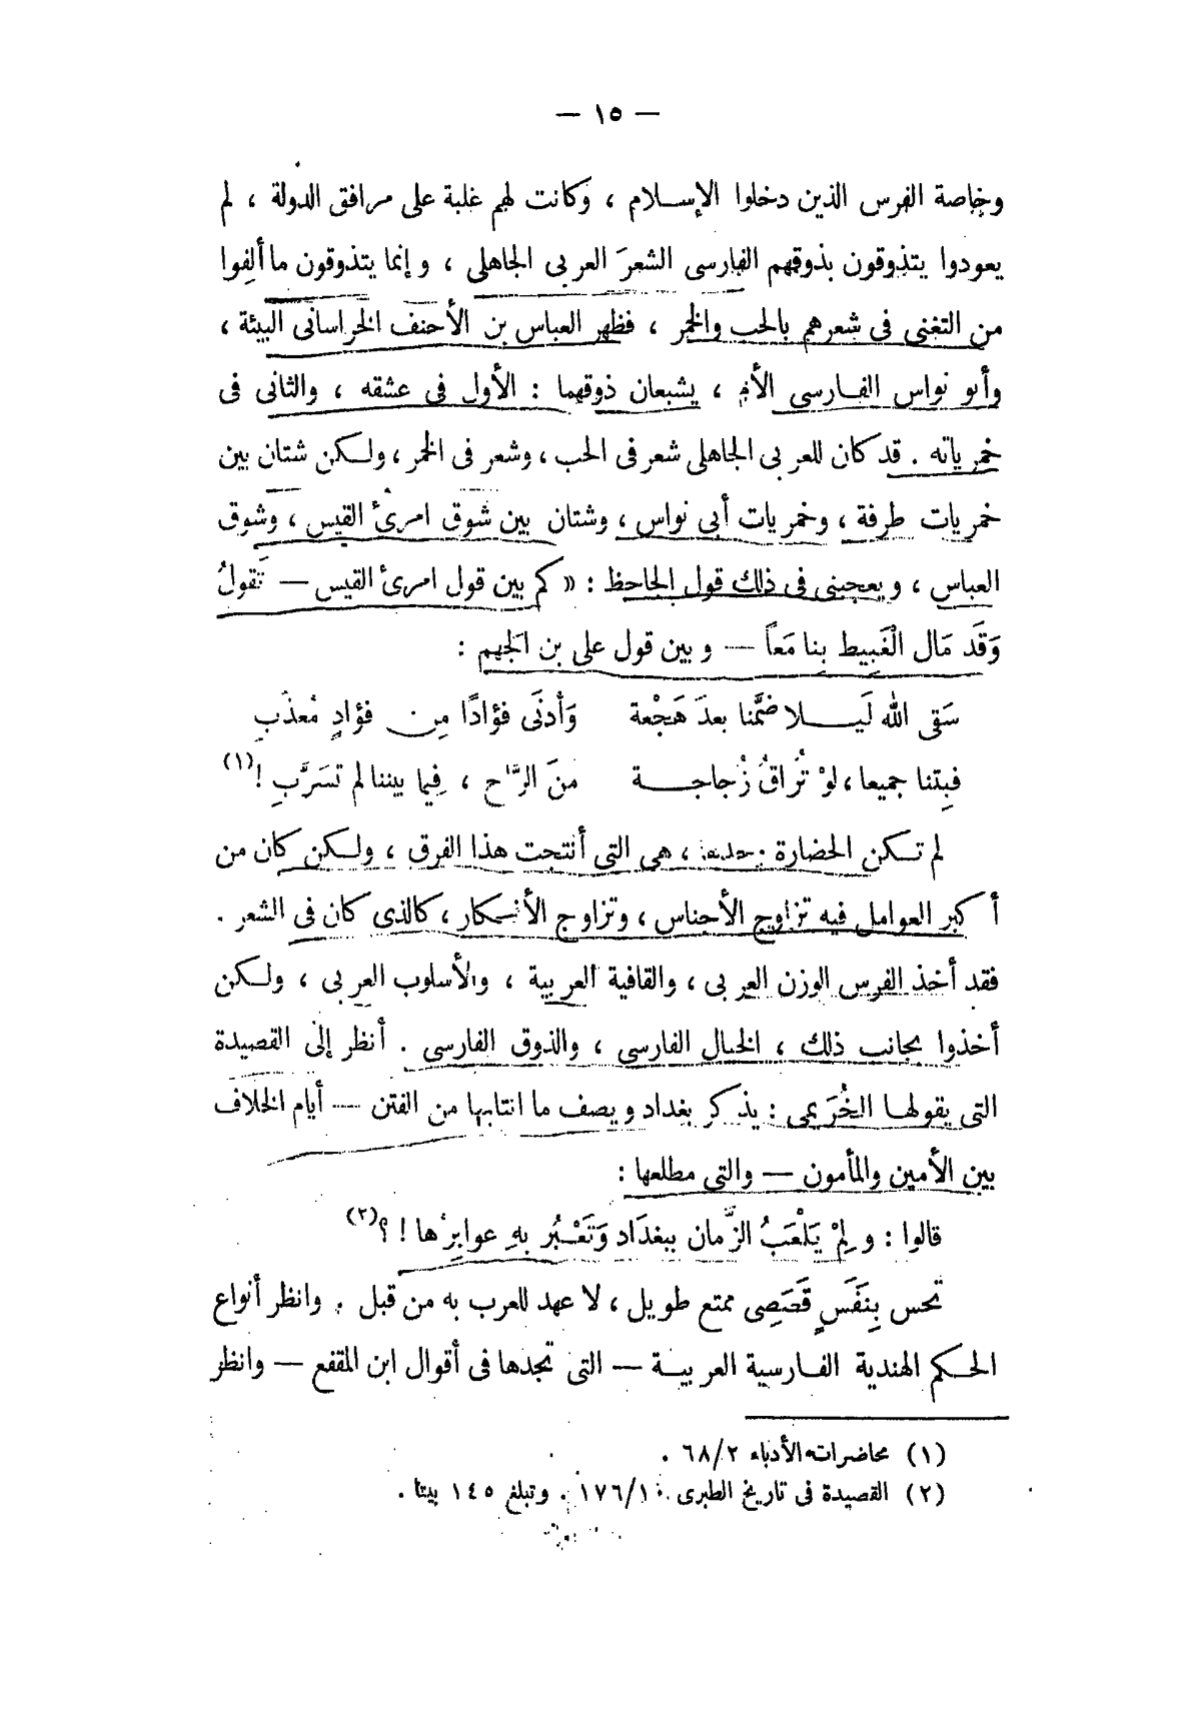 — ١٥ —
وخاصة الفرس الذين دخلوا الإسلام ، وكانت لهم غلبة على مرافق الدولة ، لم
يعودوا يتذوقون بذوقهم الفارسى الشعرَ العربى الجاهلى ، وإنما يتذوقون ما ألِفوا
من التغنى فى شعرهم بالحب والخمر ، فظهر العباس بن الأحنف الخراسانى البيئة ،
وأبو نواس الفارسى الأم ، يشبعان ذوقهما : الأول فى عشقه ، والثانى فى
خمرياته . قد كان للعربى الجاهلى شعر فى الحب ، وشعر فى الخمر ، ولكن شتان بين
خمريات طرفة ، وخمريات أبى نواس ، وشتان بين شوق امرئ القيس ، وشوق
العباس ، ويعجبنى فى ذلك قول الجاحظ : « كم بين قول امرئ القيس — تَقولُ
وَقَد مَال الْغَبِيط بِنا مَعاً — وبين قول على بن الجهم :
سَقى الله لَيلا ضمَّنا بعدَ هَجْعة وَأدنَى فؤادًا مِن فؤادٍ مُعذّبِ
فبِتنا جميعا ، لوْ تُراقُ زُجاجة منَ الرَّاح ، فِيما بيننا لم تسَرَّبِ ! (١)
لم تكن الحضارة وحدها ، هى التى أنتجت هذا الفرق ، ولكن كان من
أكبر العوامل فيه تزاوج الأجناس ، وتزاوج الأفكار ، كالذى كان فى الشعر .
فقد أخذ الفرس الوزن العربى ، والقافية العربية ، والأسلوب العربى ، ولكن
أخذوا بجانب ذلك ، الخيال الفارسى ، والذوق الفارسى . أنظر إلى القصيدة
التى يقولها الخُرَيمى : يذكر بغداد ويصف ما انتابها من الفتن — أيام الخلاف
بين الأمين والمأمون — والتى مطلعها :
قالوا : ولمْ يَلْعَبُ الزَّمان ببغدَاد وَتَعْثُر بهِ عواثِرُها ! ؟ (٢)
تحس بِنَفَسٍ قَصَصِى ممتع طويل ، لا عهد للعرب به من قبل . وانظر أنواع
الحكم الهندية الفارسية العربية — التى تجدها فى أقوال ابن المقفع — وانظر
(١) محاضرات الأدباء ٦٨/٢ .
(٢) القصيدة فى تاريخ الطبرى ١٧٦/١٠ . وتبلغ ١٤٥ بيتا .